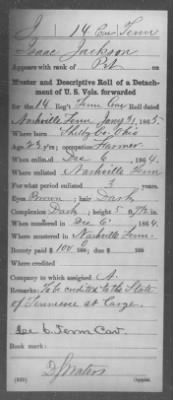 J 14 Cav Tenn
Isaac Jackson
Appears with rank of Pvt on
Muster and Descriptive Roll of a Detach-
ment of U. S. Vols. forwarded
for the 14 Reg't Tenn Cav. Roll dated
Nashville Tenn Jany 31, 1865.
Where born Shelby Co. Ohio
Age 23 y'rs; occupation Farmer
When enlisted Dec 6, 1864.
Where enlisted Nashville Tenn
For what period enlisted 3 years.
Eyes Brown; hair Dark
Complexion Dark; height 5 ft. in.
When mustered in Dec 6, 1864.
Where mustered in Nashville Tenn.
Bounty paid $ 100; due $
Where credited
Company to which assigned A.
Remarks: To be credited to the State
of Tennessee at Large.
See 6. Tenn Cav.
Book mark:
D. J. Waters
Copyist.